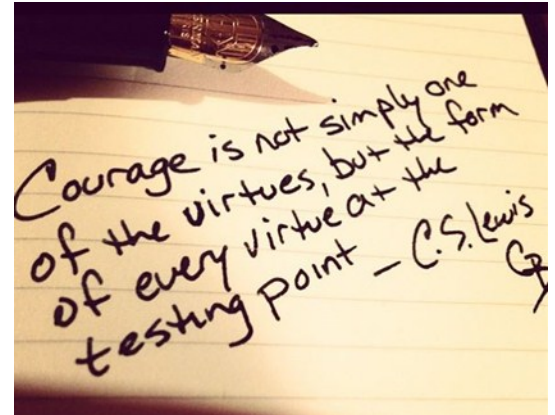 Courage is not simply one
of the virtues, but the form
of every virtue at the
testing point - C.S. Lewis